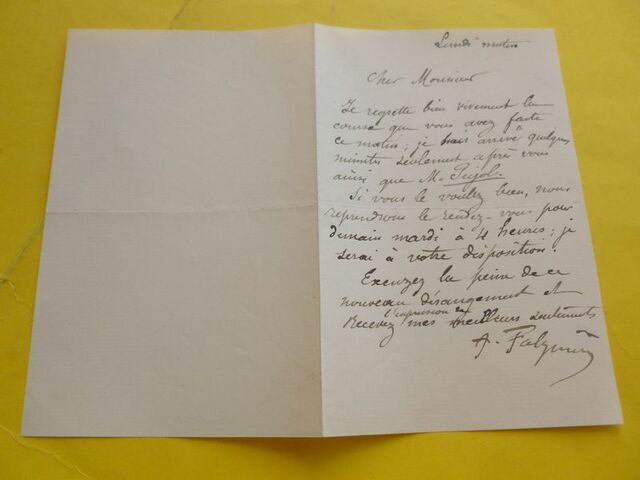 Lundi matin
Cher Monsieur
Je regrette bien vivement la
course que vous avez faite
ce matin; je suis arrivé quelques
minutes seulement après vous
ainsi que M. Pujol.
Si vous le voulez bien, nous
reprendrons le rendez-vous pour
demain mardi à 4 heures; je
serai à votre disposition.
Excuzez la peine de ce
nouveau dérangement et
Recevez l'expression de mes meilleurs sentiments
A.